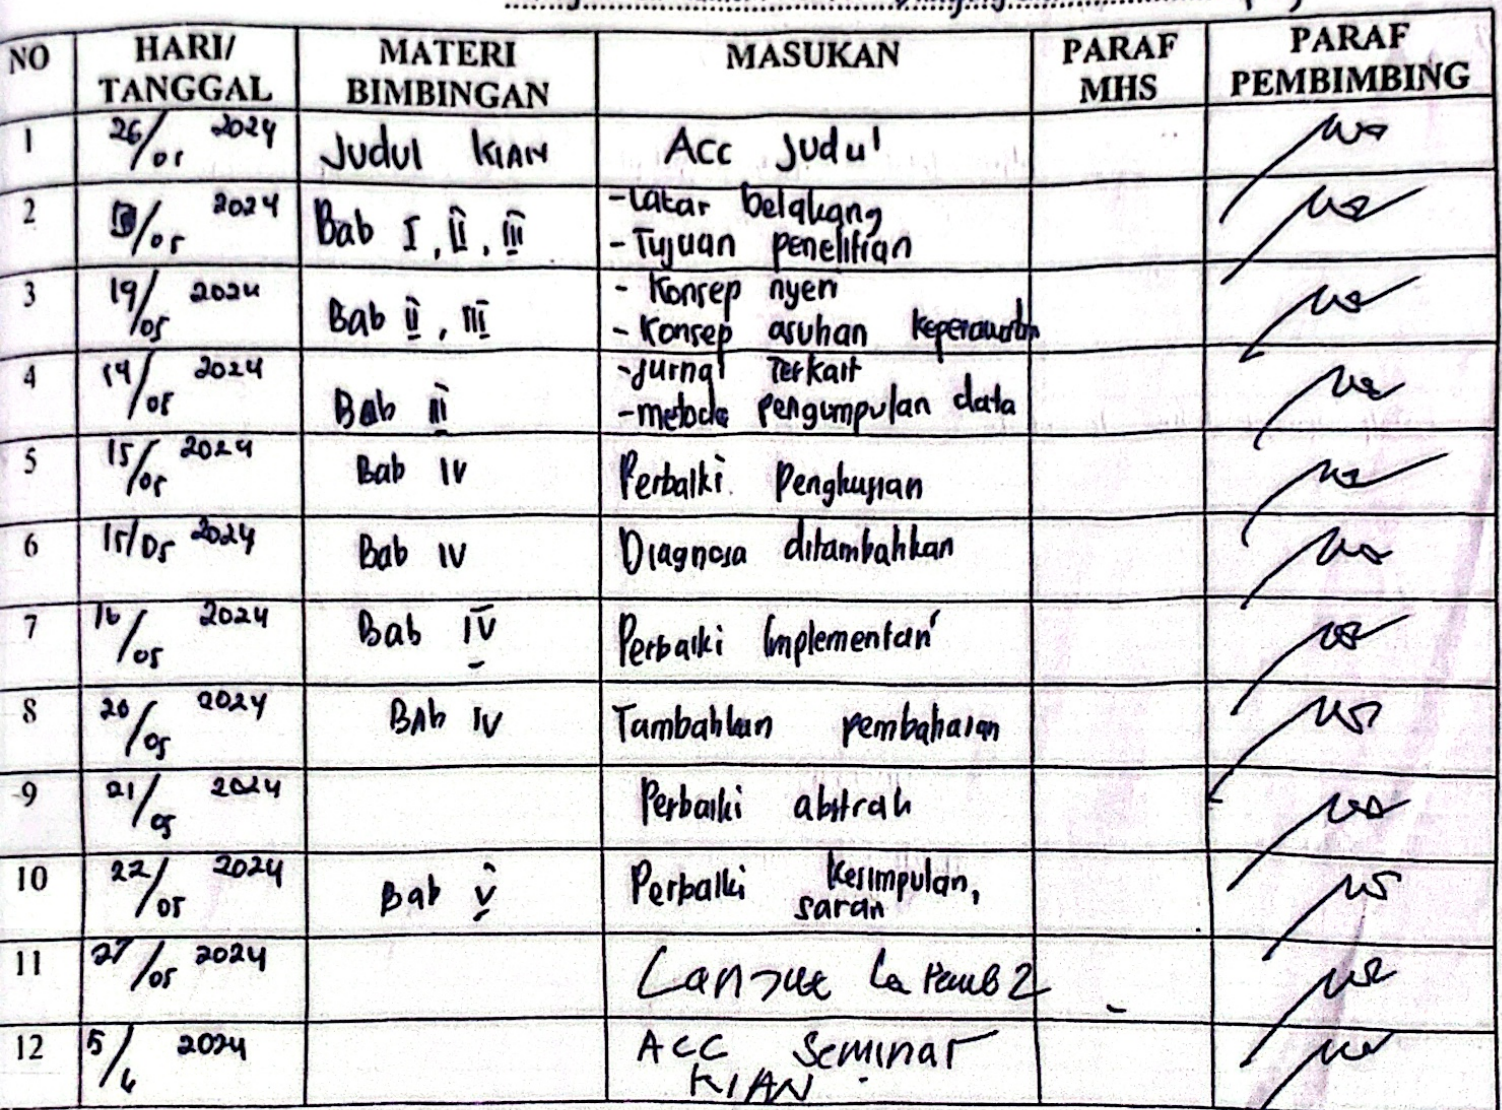 NO HARI/ TANGGAL MATERI BIMBINGAN MASUKAN PARAF MHS PARAF PEMBIMBING
1 26/01 2024 Judul KIAN Acc Judul
2 /05 2024 Bab I, II, III -Latar belakang
-Tujuan penelitian
3 19/05 2024 Bab II, III - Konsep nyeri
- Konsep asuhan keperawatan
4 14/05 2024 Bab III -Jurnal Terkait
-metode pengumpulan data
5 15/05 2024 Bab IV Perbaiki Pengkajian
6 15/05 2024 Bab IV Diagnosa ditambahkan
7 16/05 2024 Bab IV Perbaiki Implementasi
8 20/05 2024 Bab IV Tambahkan pembahasan
9 21/05 2024 Perbaiki abstrak
10 22/05 2024 Bab V Perbaiki kesimpulan,
saran
11 27/05 2024 Lanjut ke Pemb 2
12 5/6 2024 Acc Seminar
KIAN